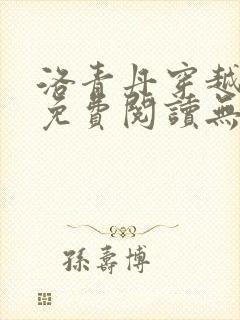 洛青丹穿越
免費閱讀無
孫壽博